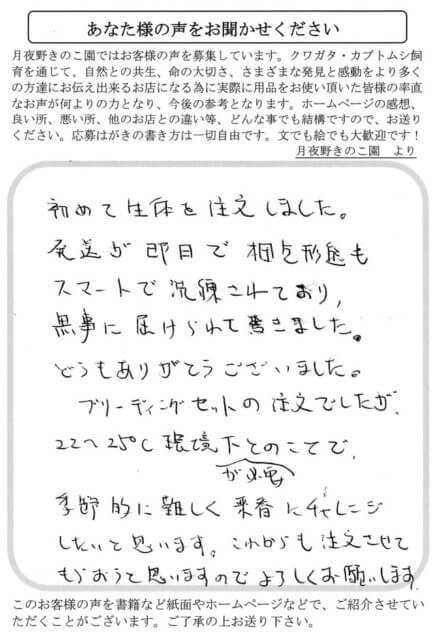 あなた様の声をお聞かせください
月夜野きのこ園ではお客様の声を募集しています。クワガタ・カブトムシ飼
育を通じて、自然との共生、命の大切さ、さまざまな発見と感動をより多く
の方達にお伝え出来るお店になる為に実際に用品をお使い頂いた皆様の率直
なお声が何よりの力となり、今後の参考となります。ホームページの感想、
良い所、悪い所、他のお店との違い等、どんな事でも結構ですので、お送り
ください。応募はがきの書き方は一切自由です。文でも絵でも大歓迎です！
月夜野きのこ園　より
初めて生体を注文しました。
発送が即日で梱包形態も
スマートで洗練されており,
無事に届けられて驚きました。
どうもありがとうございました。
ブリーディングセットの注文でしたが、
22〜25℃環境下とのことで、
が必要
季節的に難しく来春にチャレンジ
したいと思います。これからも注文させて
もらおうと思いますのでよろしくお願いします
このお客様の声を書籍など紙面やホームページなどで、ご紹介させてい
ただくことがございます。ご了承の上お送り下さい。